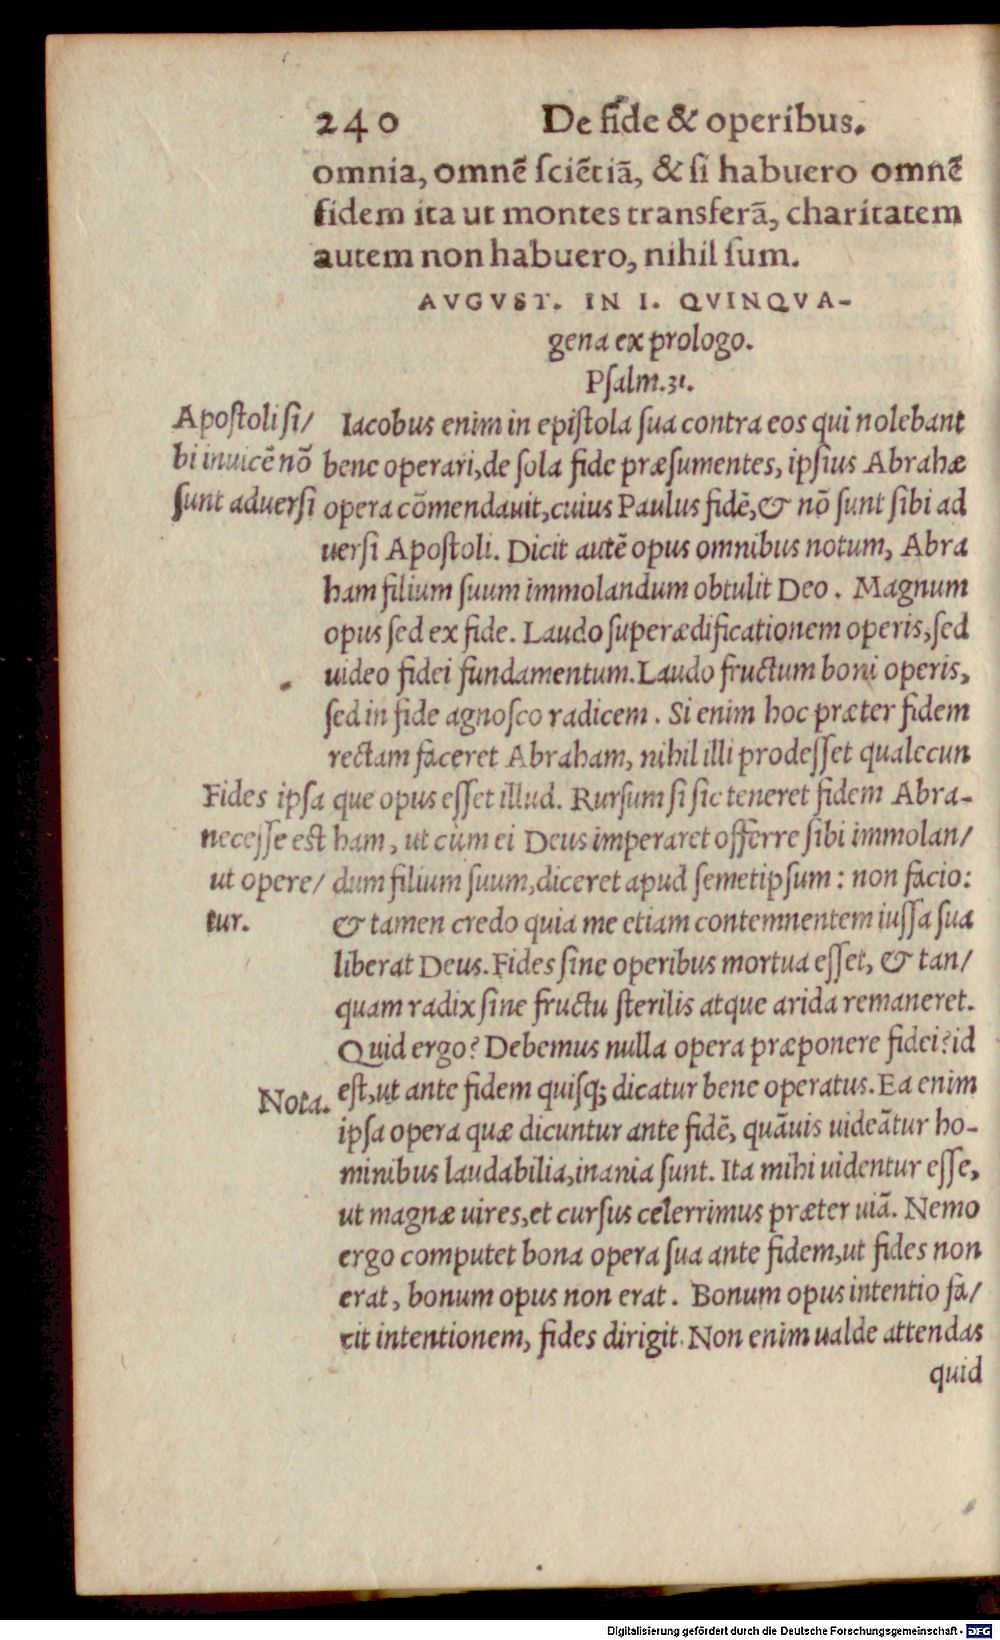 240 De fide & operibus.
omnia, omnē ſciētiā, & ſi habuero omnē
fidem ita ut montes transferā, charitatem
autem non habuero, nihil ſum.
AVGVST. IN I. QVINQVA-
gena ex prologo.
Pſalm.31.
Apoſtoli ſi/
bi inuicē nō
ſunt aduerſi
Iacobus enim in epiſtola ſua contra eos qui nolebant
bene operari, de ſola fide præſumentes, ipſius Abrahæ
opera cōmendauit, cuius Paulus fidē, & nō ſunt ſibi ad
uerſi Apoſtoli. Dicit autē opus omnibus notum, Abra
ham filium ſuum immolandum obtulit Deo. Magnum
opus ſed ex fide. Laudo ſuperædificationem operis, ſed
uideo fidei fundamentum. Laudo fructum boni operis,
ſed in fide agnoſco radicem. Si enim hoc præter fidem
rectam faceret Abraham, nihil illi prodeſſet qualecun
Fides ipſa
neceſſe eſt
ut opere/
tur.
que opus eſſet illud. Rurſum ſi ſic teneret fidem Abra-
ham, ut cùm ei Deus imperaret offerre ſibi immolan/
dum filium ſuum, diceret apud ſemetipſum: non facio:
& tamen credo quia me etiam contemnentem iuſſa ſua
liberat Deus. Fides ſine operibus mortua eſſet, & tan/
quam radix ſine fructu ſterilis atque arida remaneret.
Quid ergo? Debemus nulla opera præponere fidei? id
Nota.
eſt, ut ante fidem quiſq; dicatur bene operatus. Ea enim
ipſa opera quæ dicuntur ante fidē, quāuis uideātur ho-
minibus laudabilia, inania ſunt. Ita mihi uidentur eſſe,
ut magnæ uires, et curſus celerrimus præter uiā. Nemo
ergo computet bona opera ſua ante fidem, ut fides non
erat, bonum opus non erat. Bonum opus intentio fa/
cit intentionem, fides dirigit. Non enim ualde attendas
quid
Digitalisierung gefördert durch die Deutsche Forschungsgemeinschaft - DFG